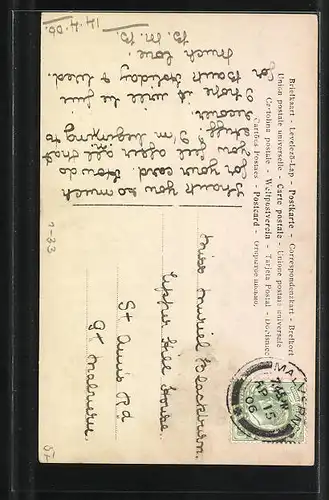 Briefkaart - Levelező-Lap - Postkarte - Correspondenzkart - Brefkort
Union postale universelle - Carte postale - Unione postale universale
Cartolina postale - Weltpostverein - Tarjeta Postal - Dopisnice
Cartões Postaes - Postcard - Открытое письмо.
14.4.06.
Thank you so much
for your card. How do
you feel after all that
I'm beginning to
recover
I hope it will be fine
for Bank Holiday & Wed.
Much love
B.M.B.
Miss Muriel Blackburn.
Upper Hill House.
St Anns Rd
Gt Malvern.
MALVERN
AP 15
06
7-33